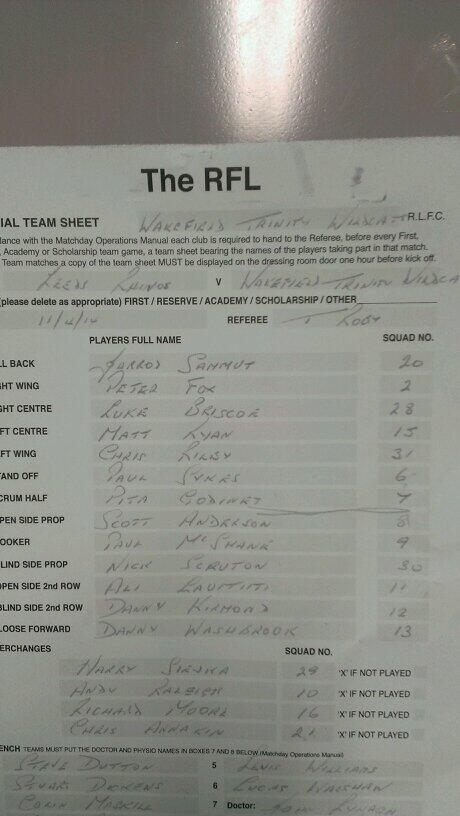 The RFL
IAL TEAM SHEET WAKEFIELD TRINITY WILDCATS R.L.F.C.
dance with the Matchday Operations Manual each club is required to hand to the Referee, before every First,
, Academy or Scholarship team game, a team sheet bearing the names of the players taking part in that match.
Team matches a copy of the team sheet MUST be displayed on the dressing room door one hour before kick off.
LEEDS RHINOS V WAKEFIELD TRINITY WILDCA
(please delete as appropriate) FIRST / RESERVE / ACADEMY / SCHOLARSHIP / OTHER
11/4/14 REFEREE T ROBY
PLAYERS FULL NAME SQUAD NO.
LL BACK JARROD SAMMUT 20
GHT WING PETER FOX 2
GHT CENTRE LUKE BRISCOE 28
FT CENTRE MATT RYAN 15
EFT WING CHRIS RILEY 31
TAND OFF PAUL SYKES 6
CRUM HALF PITA GODINET 7
PEN SIDE PROP SCOTT ANDERSON 8
OOKER PAUL McSHANE 9
LIND SIDE PROP NICK SCRUTON 30
OPEN SIDE 2nd ROW ALI LAUITIITI 11
BLIND SIDE 2nd ROW DANNY KIRMOND 12
LOOSE FORWARD DANNY WASHBROOK 13
ERCHANGES SQUAD NO.
HARRY SIEJKA 29 'X' IF NOT PLAYED
ANDY RALEIGH 10 'X' IF NOT PLAYED
RICHARD MOORE 16 'X' IF NOT PLAYED
CHRIS ANNAKIN 21 'X' IF NOT PLAYED
ENCH TEAMS MUST PUT THE DOCTOR AND PHYSIO NAMES IN BOXES 7 AND 8 BELOW (Matchday Operations Manual)
STEVE DUTTON 5 LEWIS WILLIAMS
STUART DICKENS 6 LUCAS WALSHAW
COLIN MASKILL 7 Doctor: LYNAGH